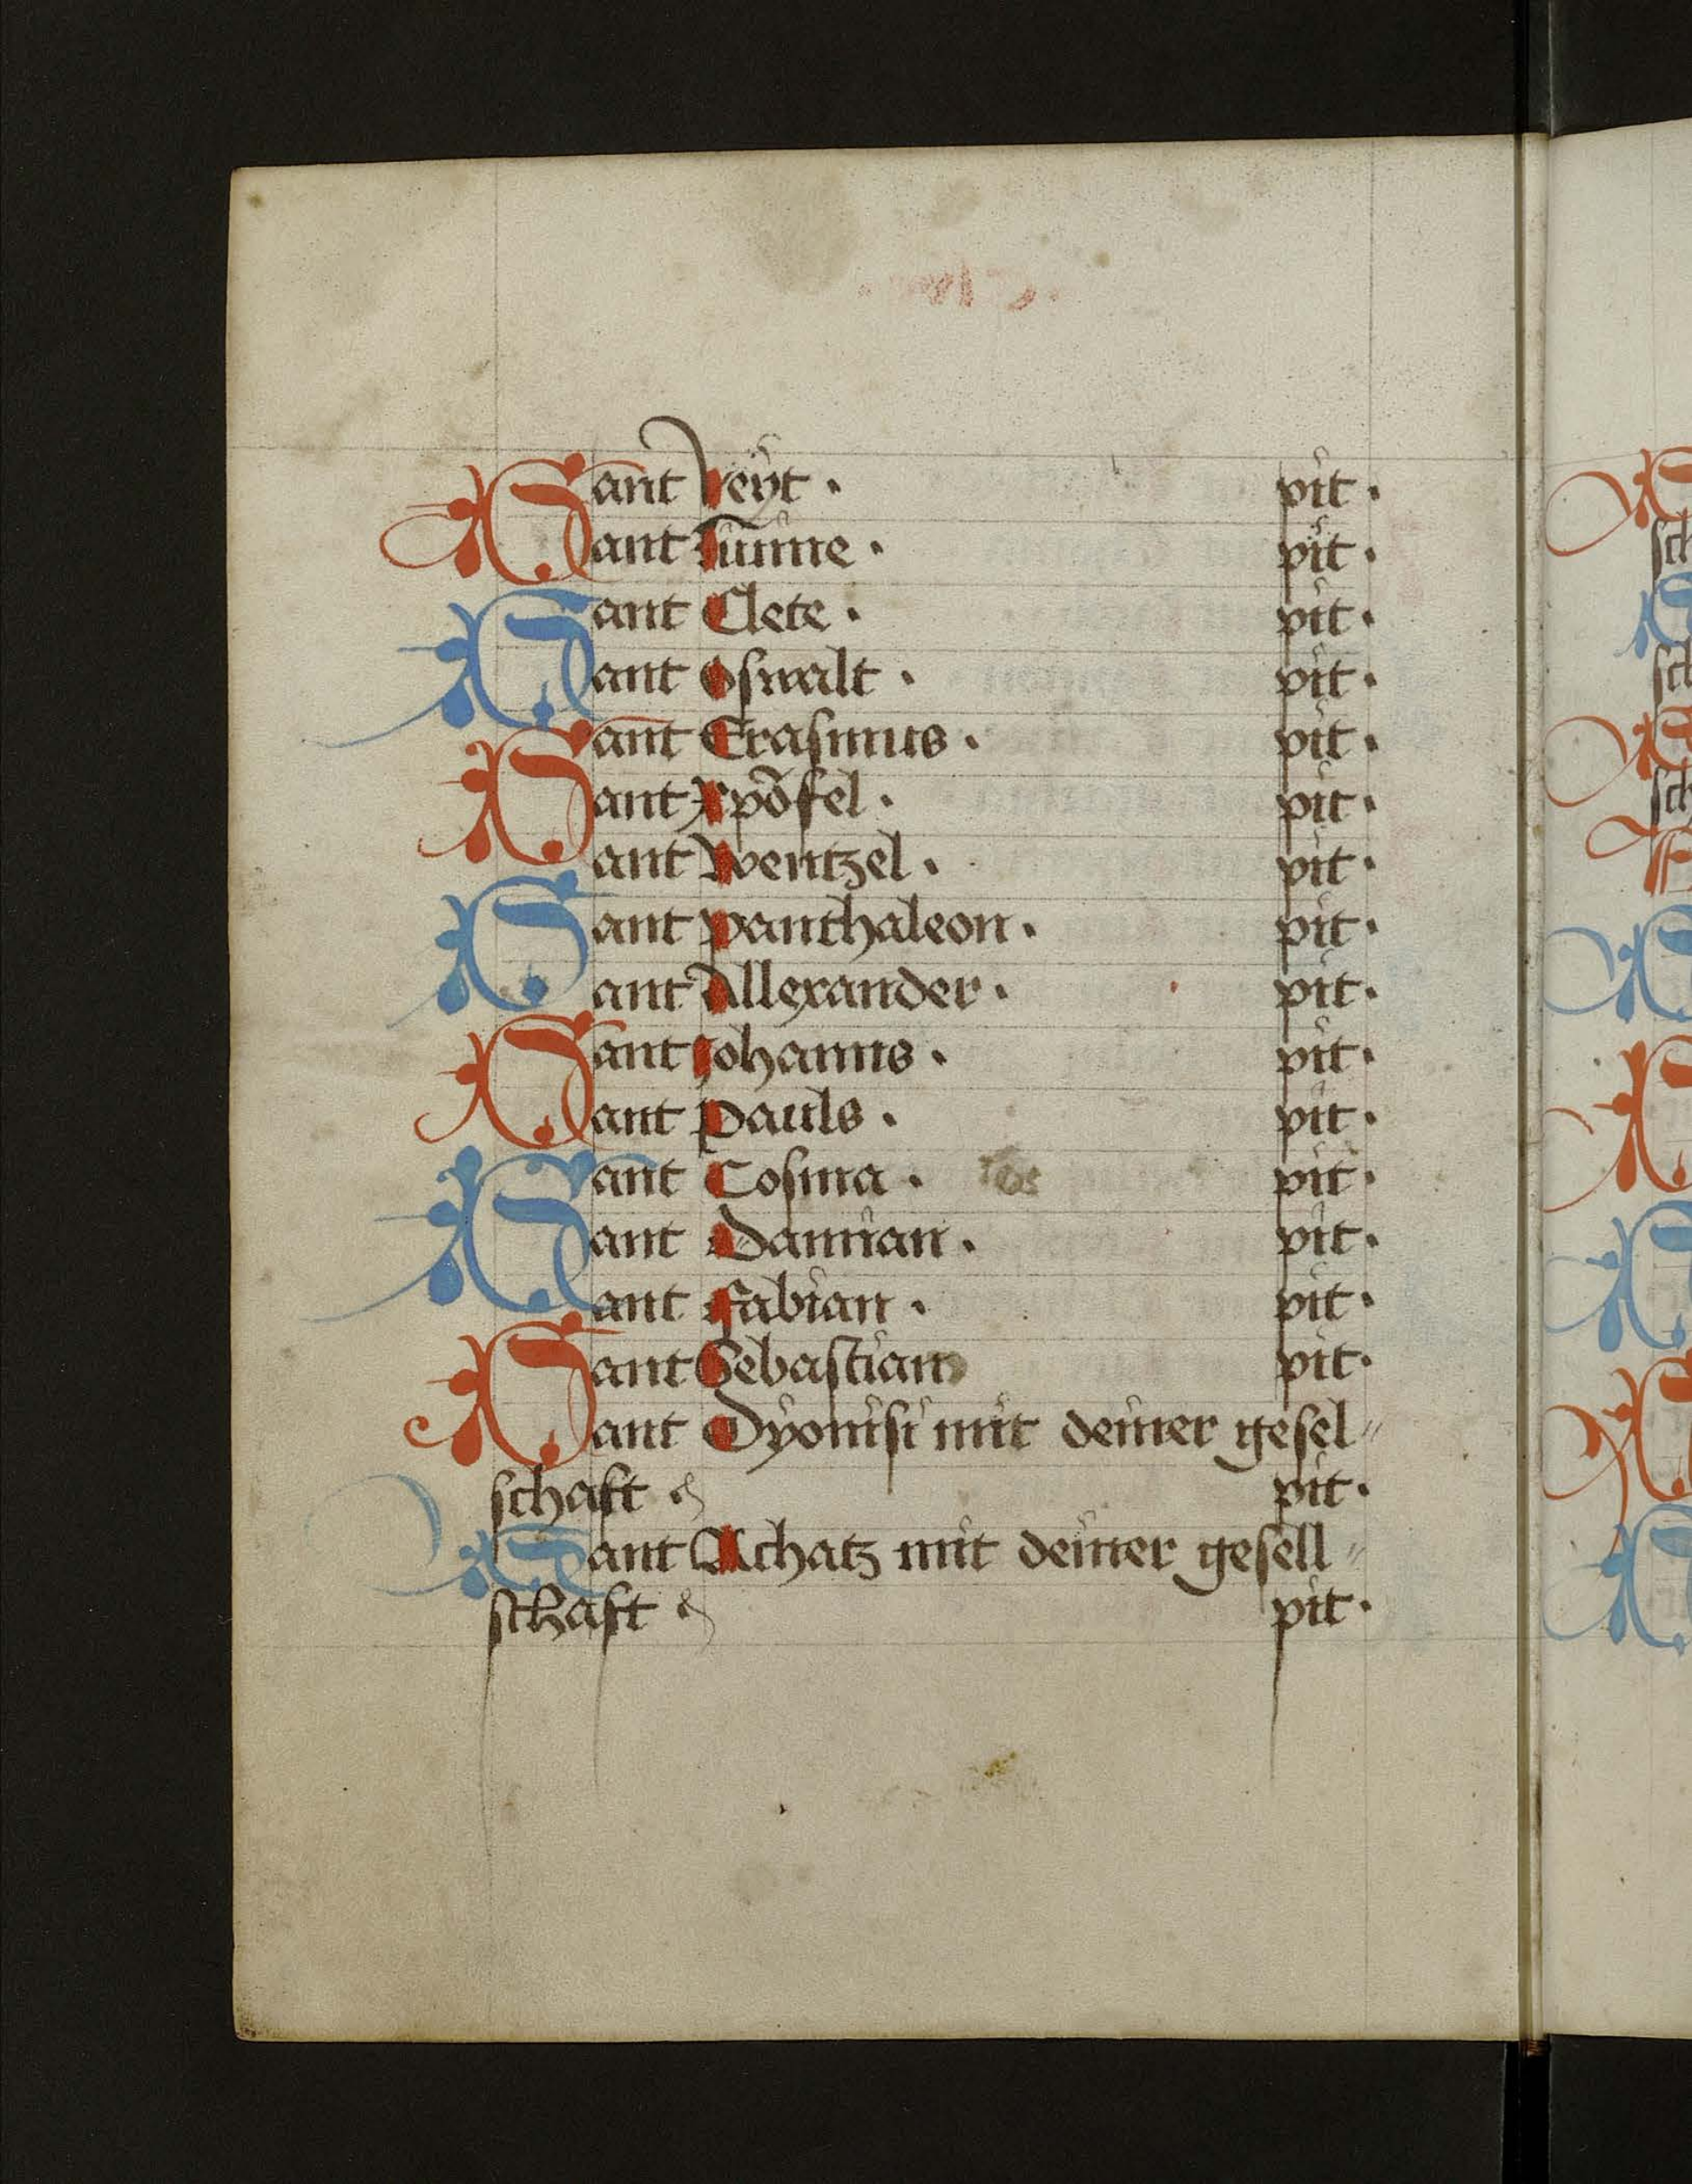 Sant Veyt · pit ·
Sant Linne · pit ·
Sant Clete · pit ·
Sant Oswalt · pit ·
Sant Erasmus · pit ·
Sant Xpõfel · pit ·
Sant Wentzel · pit ·
Sant panthaleon · pit ·
Sant Allexander · pit ·
Sant Johanns · pit ·
Sant pauls · pit ·
Sant Cosma · pit ·
Sant Damian · pit ·
Sant fabian · pit ·
Sant Sebastian pit ·
Sant Dyonisi mit deiner gesel⸗
schaft pit ·
Sant Achatz mit deiner gesell⸗
schaft pit ·